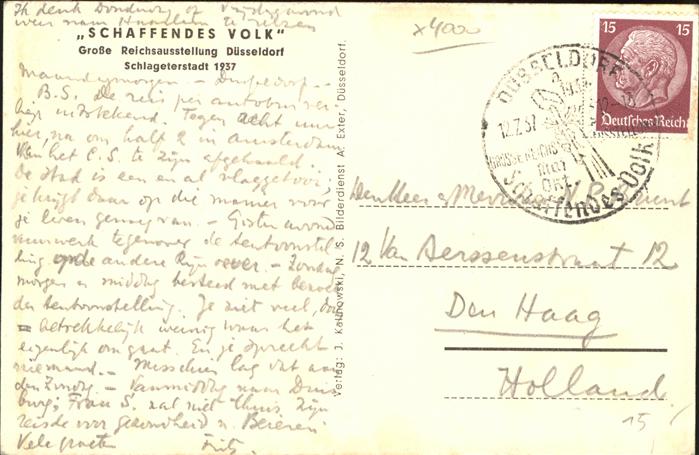 Ik denk Donderdag of Vrijdagavond
weer naar Haarlem te reizen
„SCHAFFENDES VOLK"
Große Reichsausstellung Düsseldorf
Schlageterstadt 1937
Maandagmorgen – Dusseldorf –
B.S. De reis per autobus ver-
liep uitstekend. Tegen acht uur
hier, na om half 2 in Amsterdam
van het C.S. te zijn afgehaald.
De stad is een en al vlaggetooi
je krijgt daar op die manier voor
je leven genoeg van. – Gisteravond
vuurwerk tegenover de tentoonstel-
ling op de andere Rijnoever. – Zondag
morgen en middag besteed met bezoek
der tentoonstelling. Je ziet veel, doch
betrekkelijk weinig waar het
eigenlijk om gaat. En je spreekt
niemand. – Misschien lag dat aan
den Zondag. – Vanmiddag naar Duis-
burg; Frau S. zal niet thuis zijn
reisde voor gezondheid n. Beieren.
Vele groeten
Frits.
Verlag: J. Kalinowski, N. S. Bilderdienst A. Exter, Düsseldorf.
x4000
DÜSSELDORF
12.7.37
GROSSE REICHSAUSSTELLUNG
Schaffendes Volk
15 15
Deutsches Reich
Den Heer en Mevrouw
12 Van Aerssenstraat 12
Den Haag
Holland
15